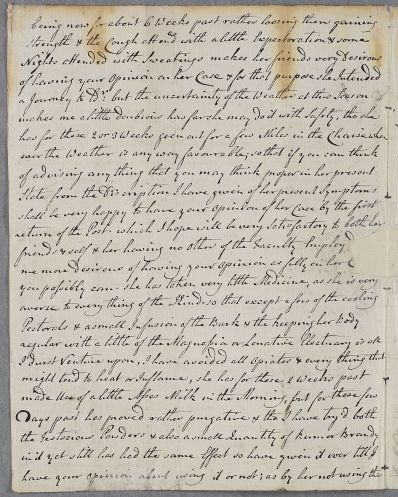 being now for about 6 Weeks past rather loosing then gaining
Strength & the Cough attend with a little Expectoration & some
Nights attended with Sweatings makes her friends very Desirous
of having your Opinion on her Case & for that purpose she Intended
a Journey to Edr but the uncertainty of the Weather at this Season
makes me a little doubious how far she may do it with Safety, tho she
has for these 2 or 3 Weeks gone out for a few Miles in the Chaise when
ever the Weather is any way favourable, so that if you can think
of advising any thing that you may think proper in her present
State from the Discription I have given of her present Symptoms
shall be very happy to have your opinion of her Case by the first
return of the Post which I hope will be very Satisfactory to both her
friends & self & her having no others of the Faculty Imploy'd
me more desirous of having your Opinion as fully on her
you possibly can. She has taken very little Medicine, as she is very
averse to every thing of the Kind, so that except a few of the cooling
Pectorals & a small Infusion of the Bark & the keeping her Body
regular with a little of the Magnesia or Lenative Electuary is all
I Durst Venture upon, I have avoided all Opiates & every thing that
might tend to heat or Inflame, she has for these 2 Weeks past
made Use of a little Asses Milk in the Morning, but for these few
Days past has proved rather purgative & tho I have try'd both
the Testacious Pouders & also a small Quantity of Rum or Brandy
in it yet still has had the same Effect so have given it over till I
have your opinion about using it or not; as by her not using the